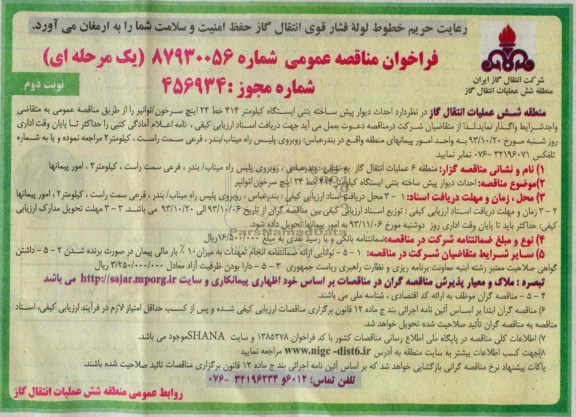 رعایت حریم خطوط لولهٔ فشار قوی انتقال گاز حفظ امنیت و سلامت شما را به ارمغان می آورد.
فراخوان مناقصه عمومی شماره ۸۷۹۳۰۰۵۶ (یک مرحله ای)
شماره مجوز :۴۵۶۹۳۴
نوبت دوم
شرکت انتقال گاز ایران
منطقه شش عملیات انتقال گاز
منطقه شـش عملیات انتقال گاز در نظردارد احداث دیوار پیش ساخته بتنی ایستگاه کیلومتر ۴۱۲ خط ۲۴ اینچ سرخون/نوانیر را از طریق مناقصه عمومی به متقاضی
واجدشرایط واگذار نماید.لـذا از متقاضیان شـرکت درمناقصه دعـوت بعمل می آید جهت دریافت اسـناد ارزیابی کیفی ، نامه اعـلام آمادگی کتبی را حداکثر تـا پایان وقت اداری
روز شنبه مـورخ ۹۳/۱۰/۲۰ بـه واحـد امور پیمانهای منطقه واقع در بندرعباس: روبروی پلیس راه میناب/بندر، فرعی سمت راست ، کیلومتر۲ مراجعه نموده و یا به شـماره
تلفکس ۳۳۱۹۶۰۷۱-۰۷۶ نمابر نمایید
۱) نام و نشانی مناقصه گزار: منطقه ۶ عملیات انتقال گاز به نشانی: بندرعباس ، روبروی پلیس راه میناب/ بندر ، فرعی سمت راست ، کیلومتر۲ ، امور پیمانها
۲)موضوع مناقصه: احداث دیوار پیش ساخته بتنی ایستگاه کیلومتر ۴۱۲ خط ۲۴ اینچ سرخون/نوانیر
۳) محل ، زمان و مهلت دریافت اسناد: ۱ – ۳ محل دریافت ارزیابی کیفی : بندرعباس ، روبروی پلیس راه میناب/بندر ، فرعی سمت راست ، کیلومتر۲ ، امور پیمانها
۲ – ۳ زمان و مهلت دریافت اسناد ارزیابی کیفی ، توزیع اسناد ارزیابی کیفی بین مناقصه گران از تاریخ ۹۳/۱۰/۰۶ الی ۹۳/۱۰/۲۰ می باشد. ۳ – ۳ مهلت تحویل مدارک ارزیابی
کیفی: حداکثر باید تا پایان وقت اداری روز دوشنبه مورخ ۹۳/۱۱/۰۶ به امور پیمانها تحویل داده شود.
۴) نوع و مبلغ ضمانتنامه شرکت در مناقصه: ضمانتنامه بانکی و یا رسید نقدی به مبلغ ۱۶/۵۰۰/۰۰۰ریال
۵) سایر شرایط متقاضیان شرکت در مناقصه: ۱ – ۵ – توانایی ارائه ضمانتنامه انجام تعهدات به میزان ۱۰ ٪ بار مالی پیمان در صورت برنده شدن ۲ – ۵ – داشتن
گواهی صلاحیت معتبر رشته ابنیه معاونت برنامه ریزی و نظارت راهبری ریاست جمهوری ۳ – ۵ – دارا بودن ظرفیت آزاد معادل ۳/۲۵۰/۰۰۰/۰۰۰ ریال می باشند
تبصره : ملاک و معیار پذیرش مناقصه گران در مناقصات بر اساس خود اظهاری پیمانکاری و سایت http://sajar.mporg.ir می باشد
۴ – ۵ – مناقصه گران موظف به ارائه کد اقتصادی ، شناسه ملی می باشند.
۶) مناقصه گران ابتدا بر اساس آئین نامه اجرائی بند ج ماده ۱۲ قانون برگزاری مناقصات ارزیابی کیفی شـده و پس از کسـب حداقل امتیاز لازم در فرآیند ارزیابی کیفی، اسناد
مناقصه به مناقصه گران تأئید صلاحیت شده تحویل خواهد شد.
۷) اطلاعات کلی مناقصه در پایگاه ملی اطلاع رسانی مناقصات کشور با کد فراخوان ۱۳۸۵۲۷۸ و سایت SHANAموجود می باشد.
۸)جهت کسب اطلاعات بیشتر به سایت منطقه به آدرس www.nigc -dist6.ir مراجعه نمایید
پاکات پیشنهاد نرخ مناقصه گرانی بازگشایی خواهد شد که بر اساس آئین نامه اجرائی بند ج ماده ۱۲ قانون برگزاری مناقصات تائید صلاحیت شده باشند.
تلفن تماس: ۶۰۱۲و ۳۳۱۹۶۲۳۴-۰۷۶
روابط عمومی منطقه شش عملیات انتقال گاز
ParsNamadData